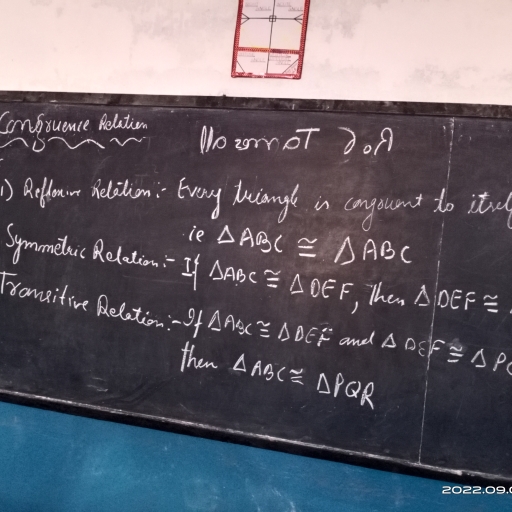 Congruence Relation
1) Reflexive Relation:- Every triangle is congruent to itself
ie △ABC ≅ △ABC
Symmetric Relation:- If △ABC ≅ △DEF, then △DEF ≅
Transitive Relation:- If △ABC ≅ △DEF and △DEF ≅ △PQ
then △ABC ≅ △PQR
2022.09.0